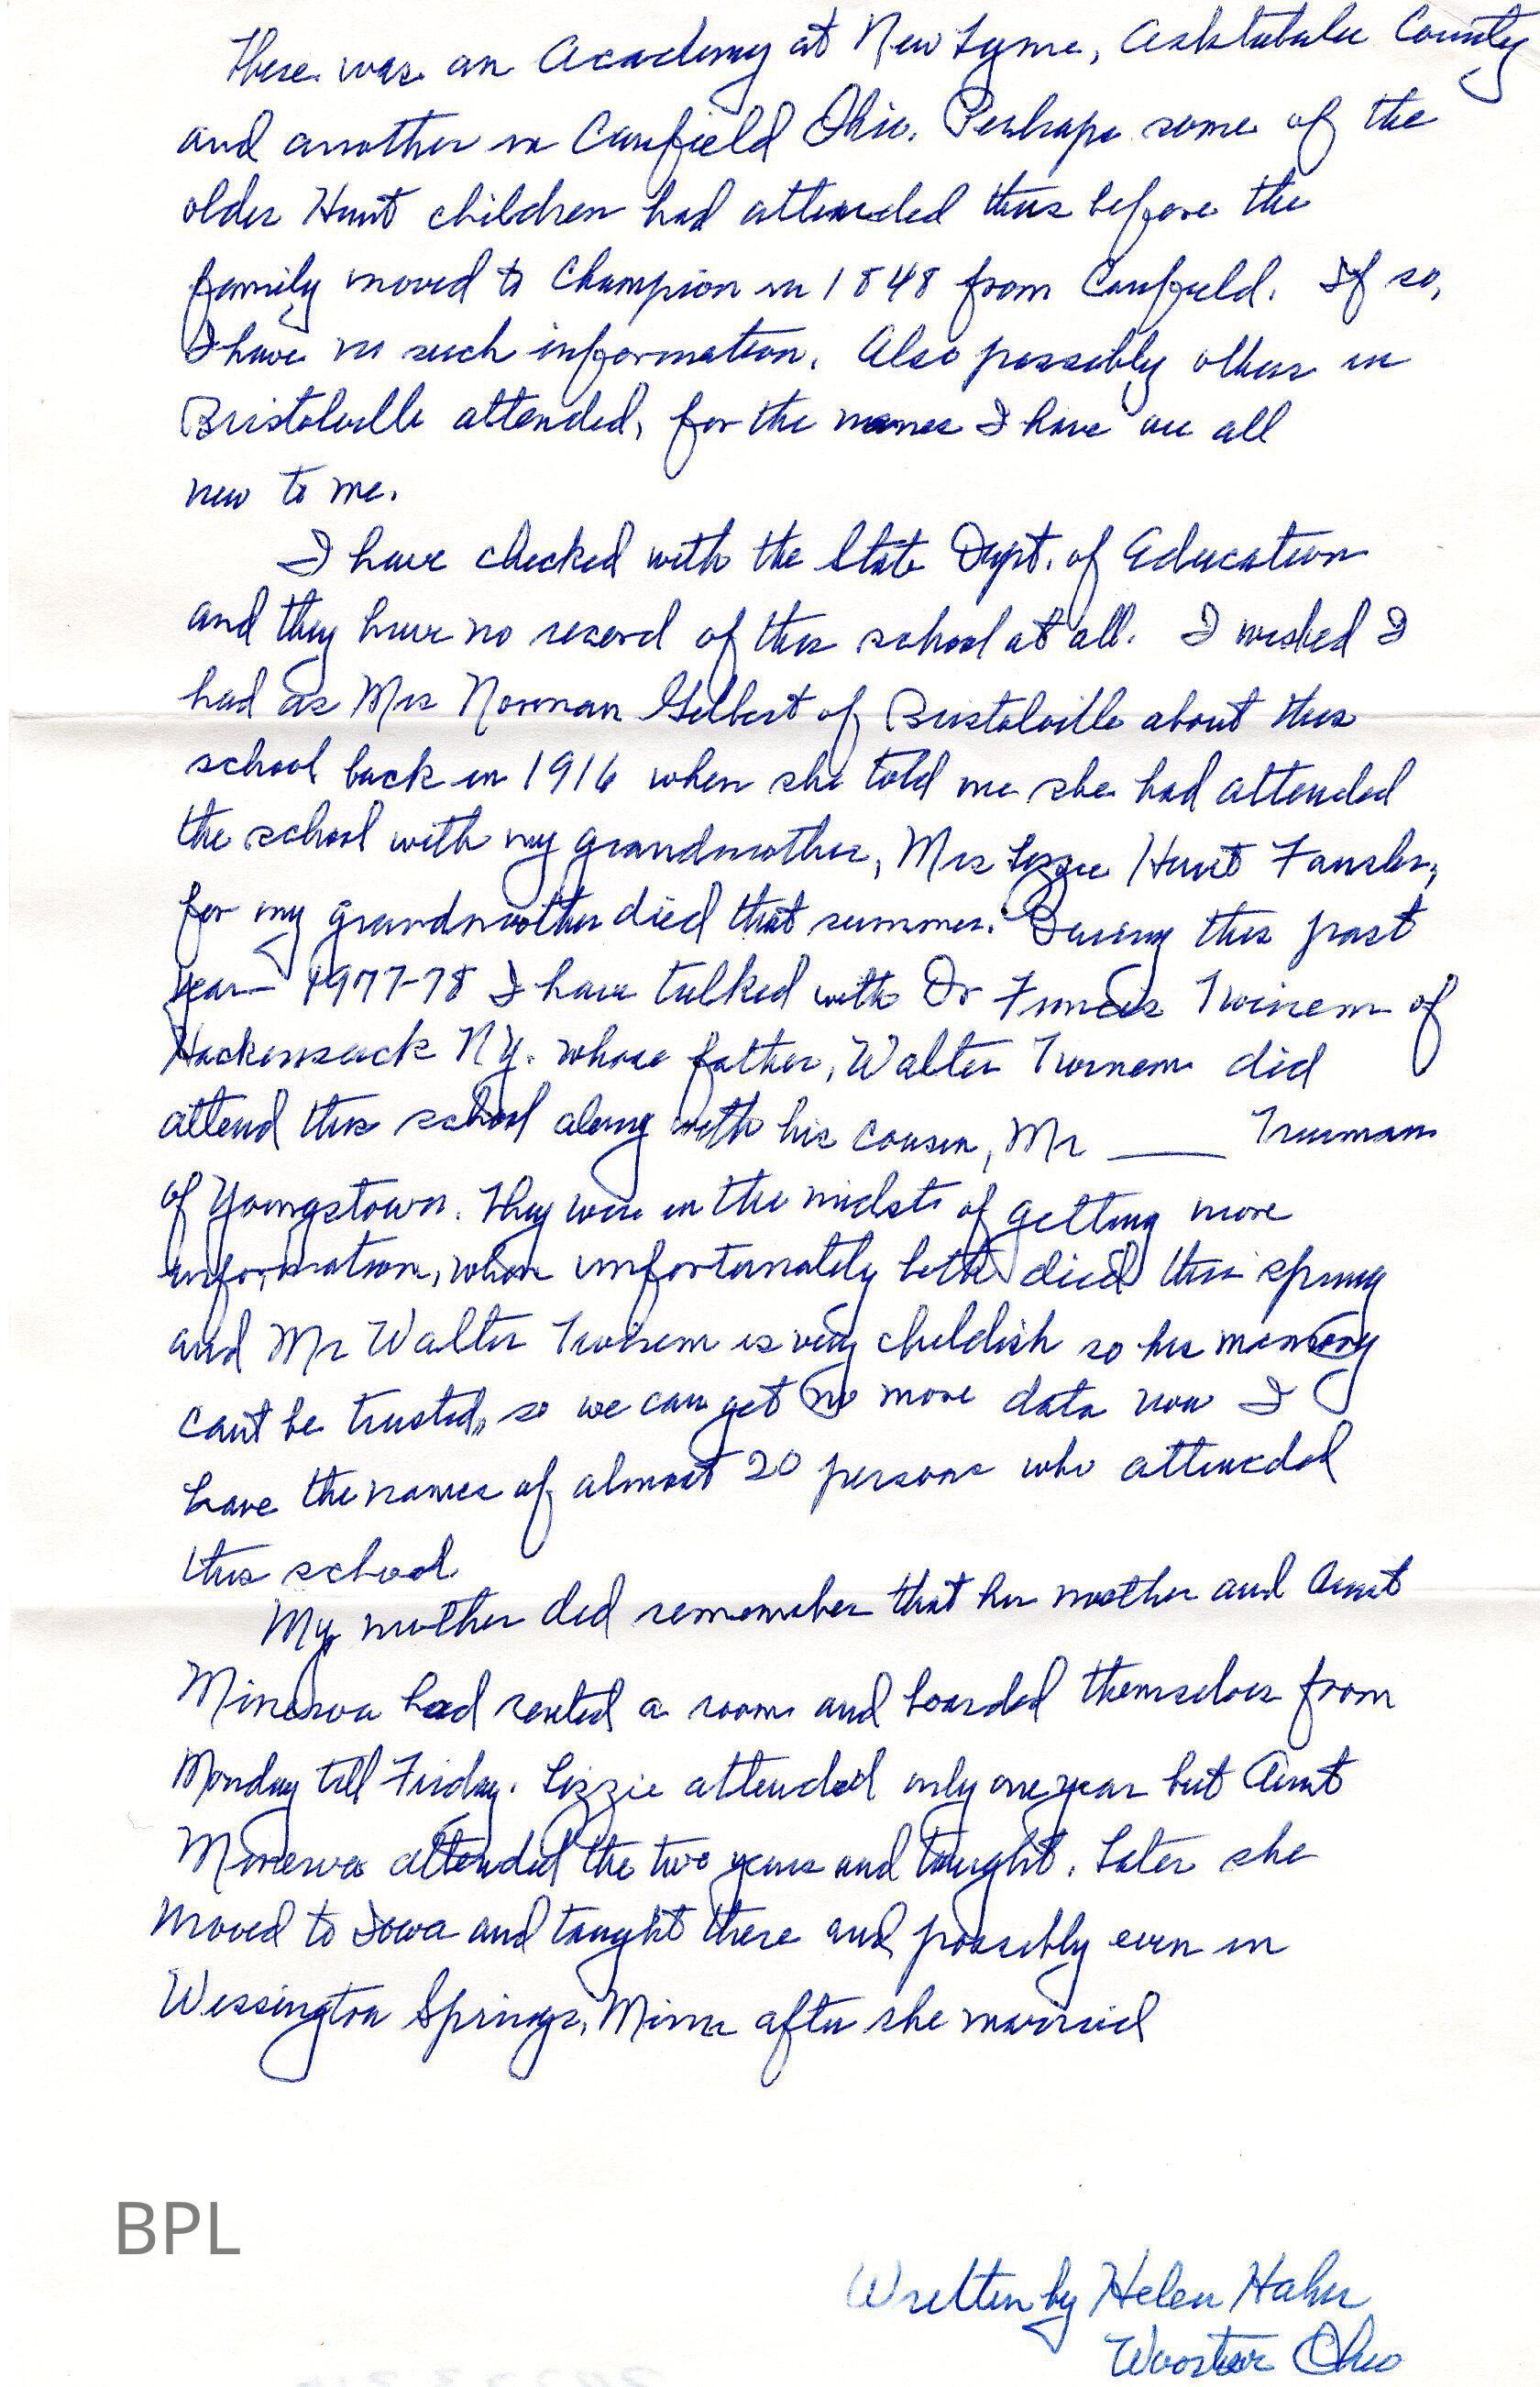 There was an Academy at New Lyme, Ashtabula County
and another in Canfield Ohio. Perhaps some of the
older Hunt children had attended this before the
family moved to Champion in 1848 from Canfield. If so,
I have no such information. Also possibly others in
Bristolville attended, for the names I have are all
new to me.
I have checked with the State Dept. of Education
and they have no record of this school at all. I wished I
had as Mrs Norman Gilbert of Bristolville about this
school back in 1916 when she told me she had attended
the school with my grandmother, Mrs Lizzie Hunt Fansler,
for my grandmother died that summer. During this past
year 1977-78 I have talked with Dr Francis Twinem of
Hackensack N.Y. whose father, Walter Twinem did
attend this school along with his cousin, Mr ____ Truman
of Youngstown. They were in the midst of getting more
information, when unfortunately both died this spring
and Mr Walter Twinem is very childish so his memory
cant be trusted, so we can get no more data now I
have the names of almost 20 persons who attended
this school.
My mother did remember that her mother and Aunt
Minerva had rented a room and boarded themselves from
Monday till Friday. Lizzie attended only one year but Aunt
Minerva attended the two years and taught. Later she
moved to Iowa and taught there and possibly even in
Wessington Springs, Minn after she married
BPL
Written by Helen Hahn
Wooster Ohio